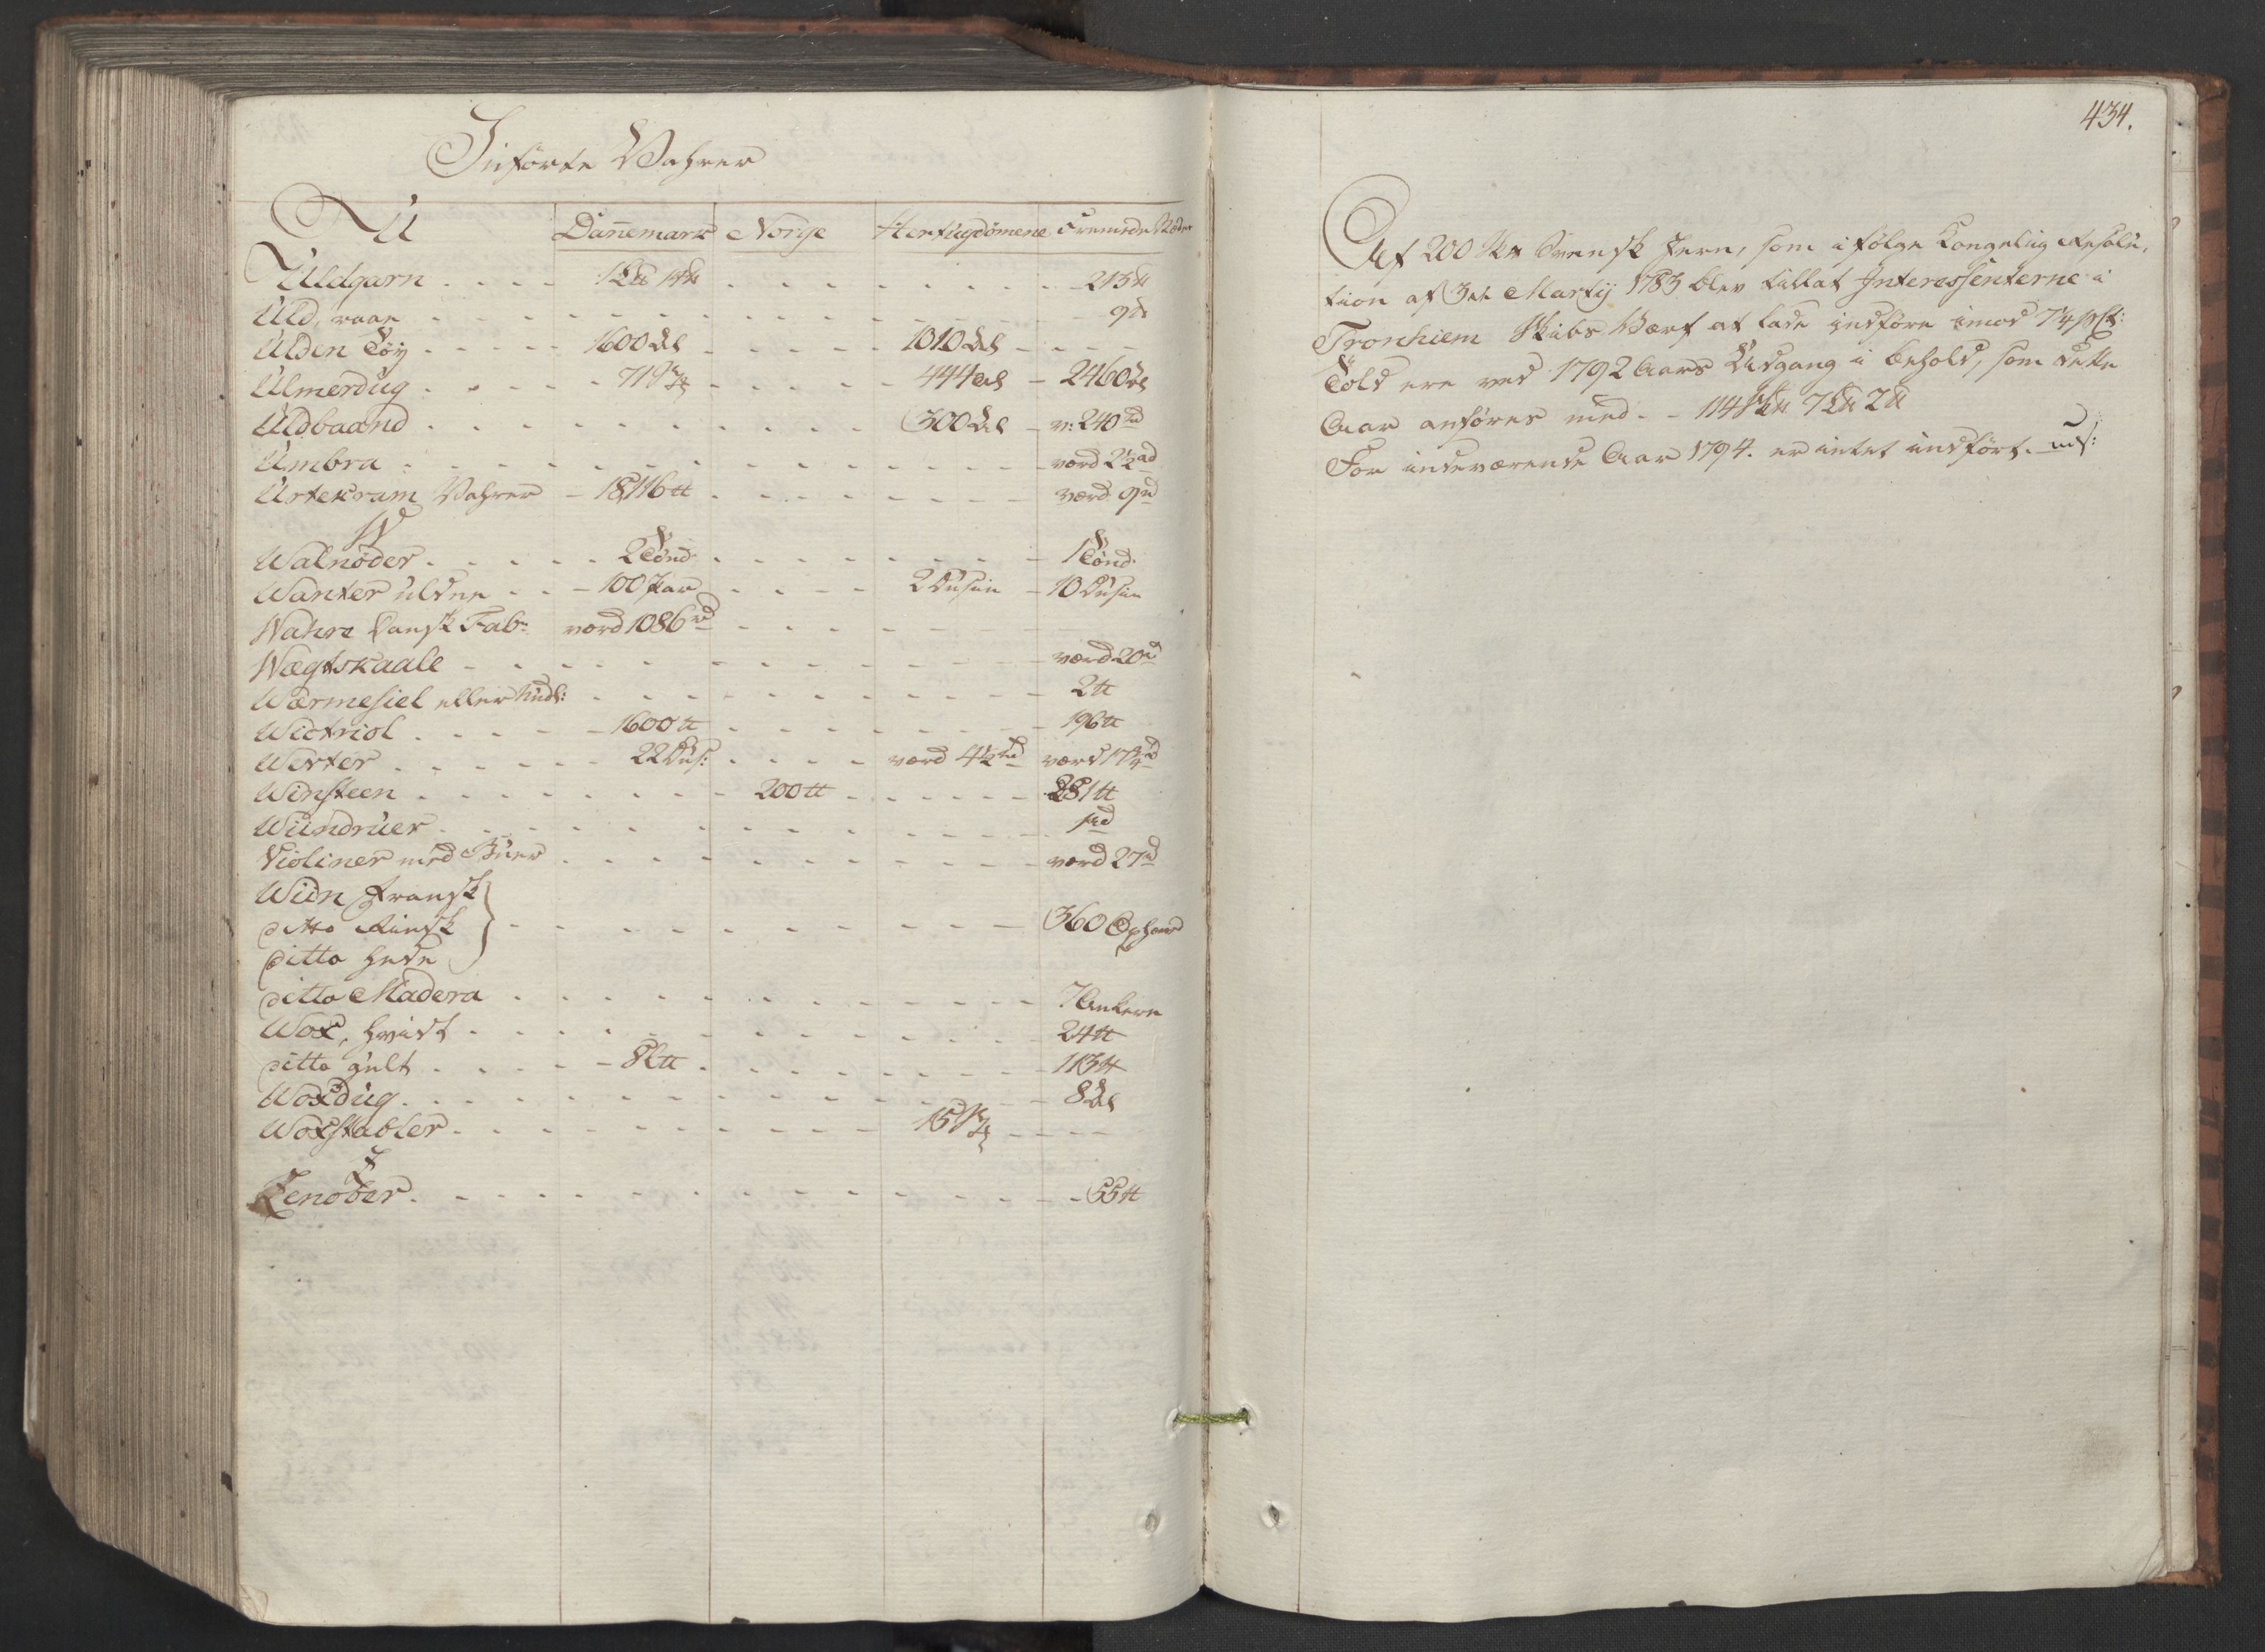 Inførte Vahrer
U Dannemark Norge Hertugdømene Fremede Stæder
Uldgarn 213 ℔
Uld, raae 9 ℔
Ulden Tøy 1600 Al 1010 Al
Ulmerdug 719 444 Al 2460 Al
Uldbaand 300 Al v: 240 rd
Umbra værd 2½ rd
Urtekram Vahrer 18116 ℔ værd 9 rd
W
Walnøder 2 Tønd 1 Tønd
Wanter uldne 100 Par 2 Dusin 10 Dusin
Wahre Dansk Fabr: værd 1086 rd
Wægtskaale værd 20 rd
Wærmesiel eller 2 ℔
Wictriol 1600 ℔ 196 ℔
Werter 22 Dus: værd 4½ rd værd 17¼ rd
Winsteen 200 ℔ 281 ℔
Wundruer
Violiner med Buer værd 27 rd
Wiin fransk
ditto Rinsk 360 Oxhoved
ditto hede
ditto Madera 7 Ankere
Wox, hvidt 24 ℔
ditto gult 82 ℔ 113 ℔
Woxdug 8 Al
Woxstabler 15
Z
Zenober 55 ℔
434.
Af 200 Sk℔ Svensk Jern, som i følge Kongeliig Resolu-
tion af 3de Martij 1783 blev tillat Interessenterne i
Tronhiem Skibs Værf at lade indføre imod 7¼ pCt:
Told ere ved 1792 Aars Udgang i behold, som dette
Aar anføres med - - 114 Sk℔ 7 L℔ 2 ℔
For indeværende Aar 1794. er intet indført.